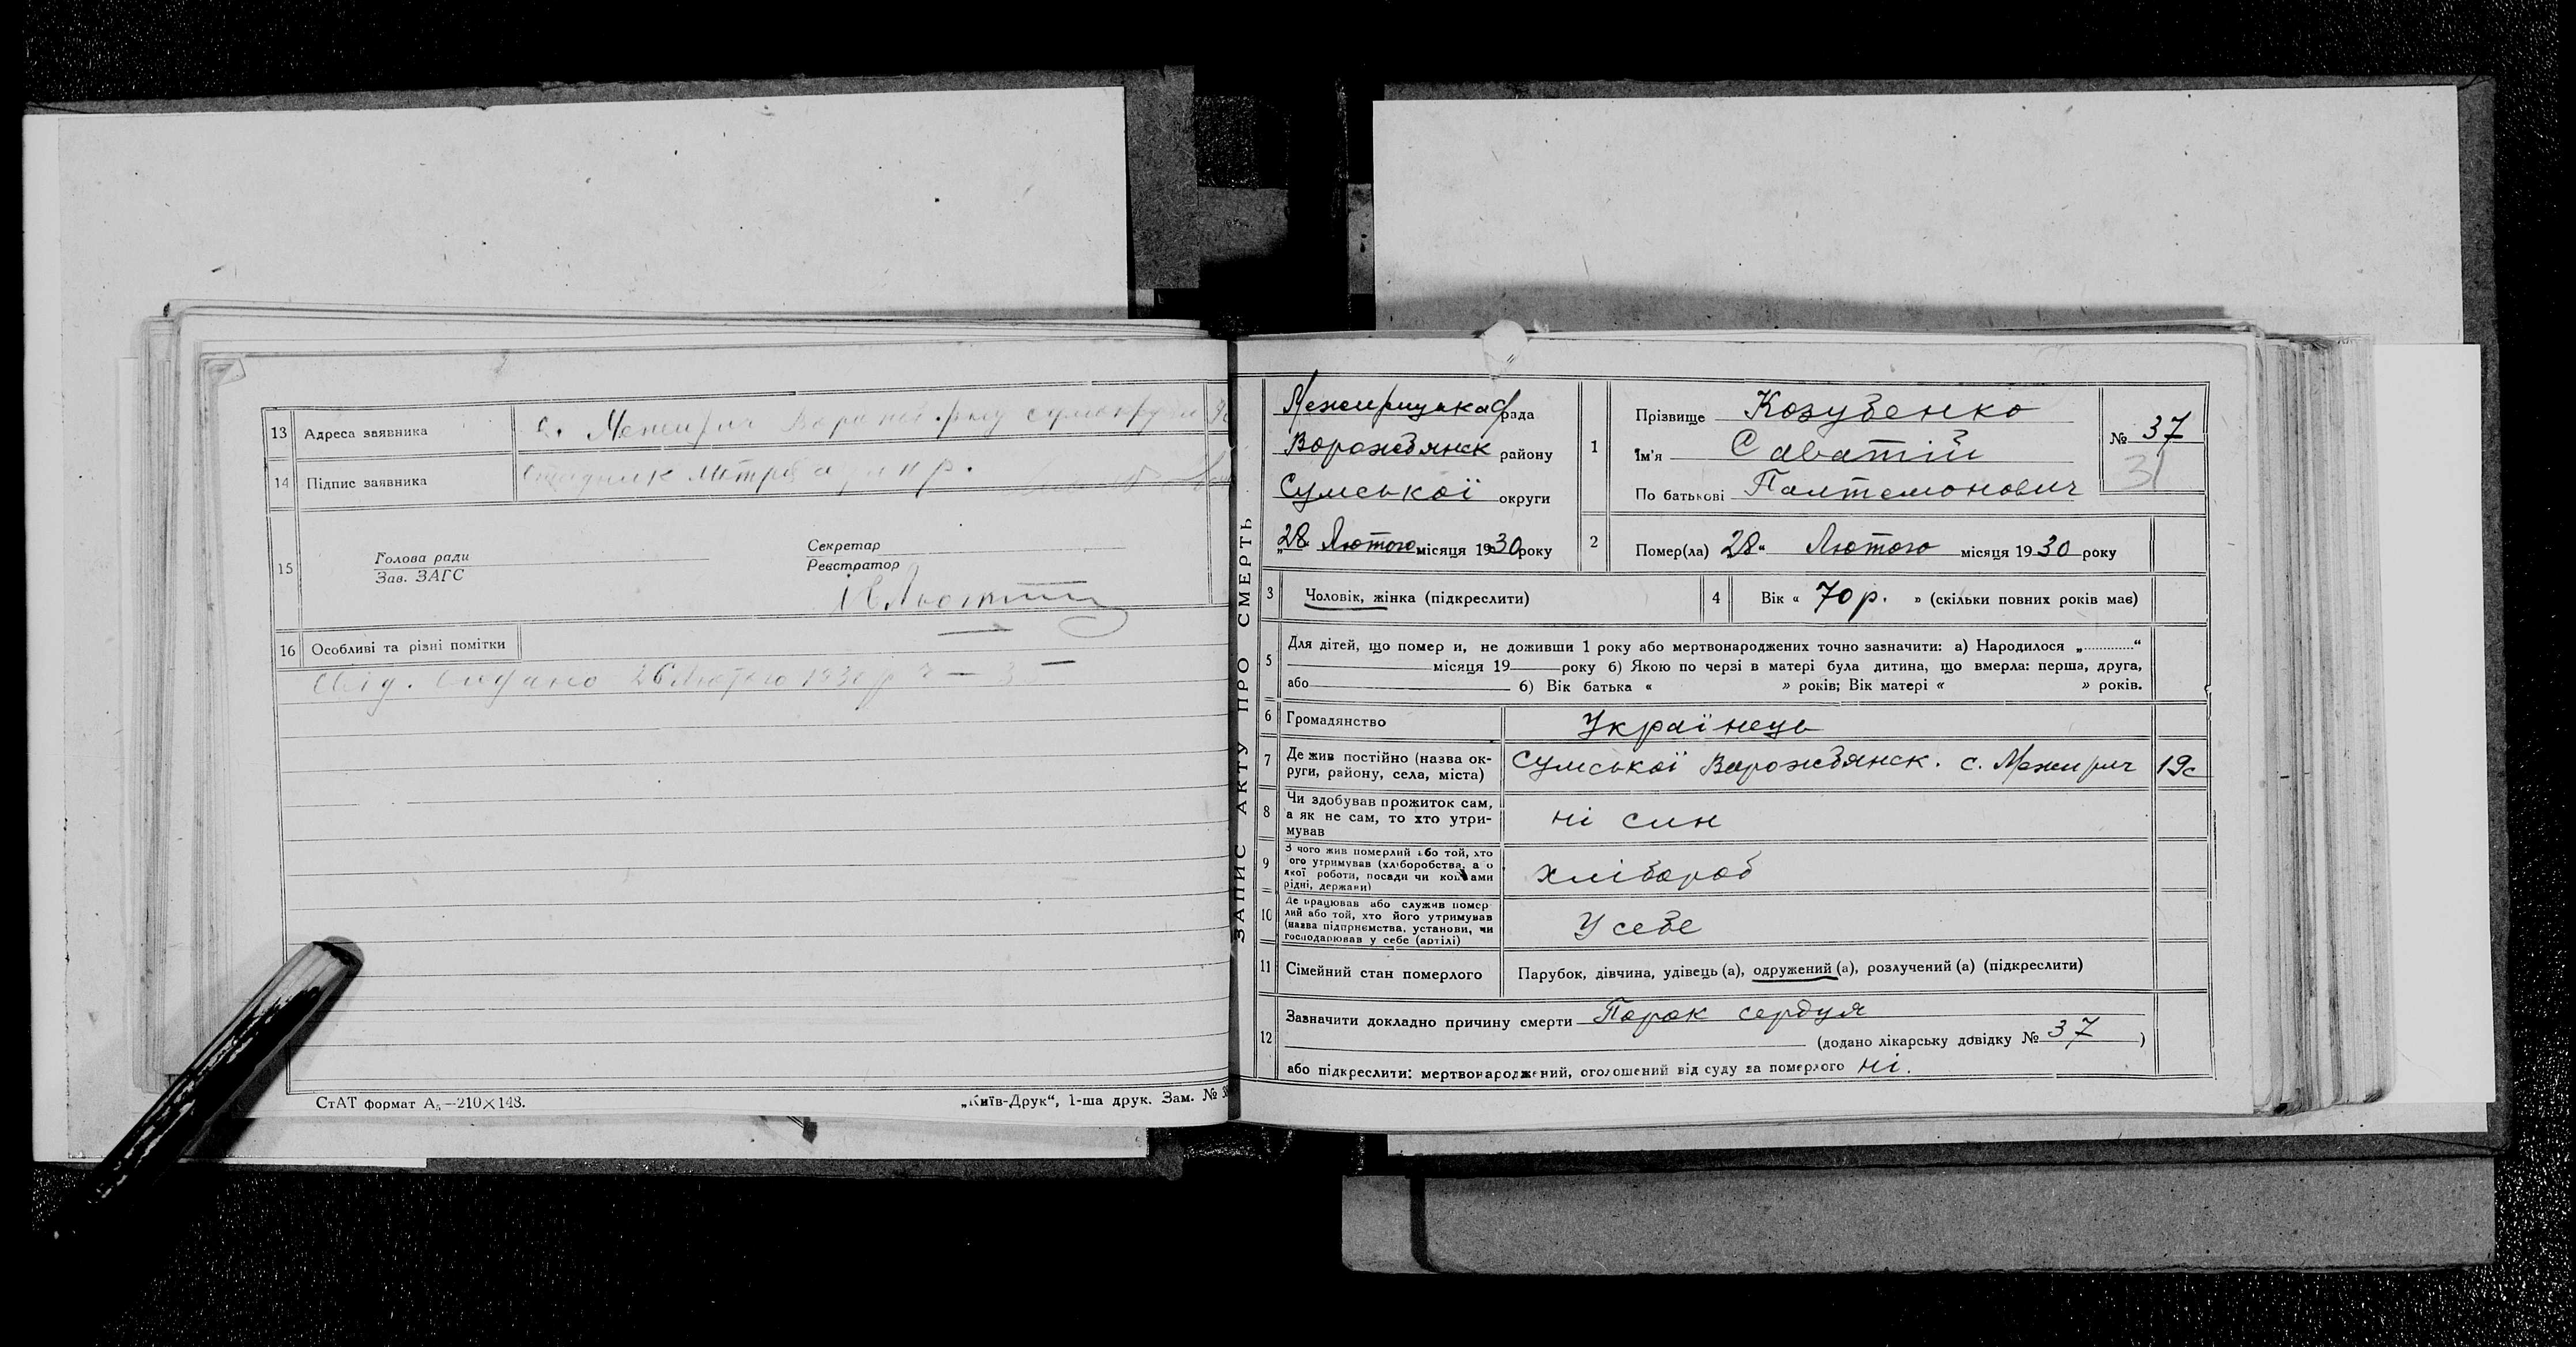 13 Адреса заявника с. Межирич
14 Підпис заявника Стадник
15 Голова ради Секретар
Зав. ЗАГС Реєстратор
16 Особливі та різні помітки
Свід. видано 26 Лютого 1930 р
СтАТ формат А₅—210×148. „Київ-Друк“, 1-ша друк. Зам. №
ЗАПИС АКТУ ПРО СМЕРТЬ
Межирицька рада
Ворожбянск району
Сумської округи
„28 Лютого місяця 1930 року
1 Прізвище Козубенко
Ім'я Саватій
По батькові Палтемонович
№ 37
31
2 Помер(ла) 28 “ Лютого місяця 1930 року
3 Чоловік, жінка (підкреслити)
4 Вік « 70 р. » (скільки повних років має)
5 Для дітей, що помер и, не доживши 1 року або мертвонароджених точно зазначити: а) Народилося „............“
місяця 19 року б) Якою по черзі в матері була дитина, що вмерла: перша, друга,
або б) Вік батька « » років; Вік матері « » років.
6 Громадянство Українець
7 Де жив постійно (назва ок-
руги, району, села, міста) Сумської Ворожбянск. с. Межирич 19с
8 Чи здобував прожиток сам,
а як не сам, то хто утри-
мував ні син
9 З чого жив померлий або той, хто
ого утримував (хліборобства, а о
якої роботи, посади чи коштами
рідні, держави) хлібороб
10 Де працював або служив помер-
лий або той, хто його утримував
(назва підприємства, установи, чи
господарював у себе (артілі) У себе
11 Сімейний стан померлого Парубок, дівчина, удівець (а), одружений (а), розлучений (а) (підкреслити)
12 Зазначити докладно причину смерти Порок сердця
(додано лікарську довідку № 37 )
або підкреслити: мертвонароджений, оголошений від суду за померлого ні.